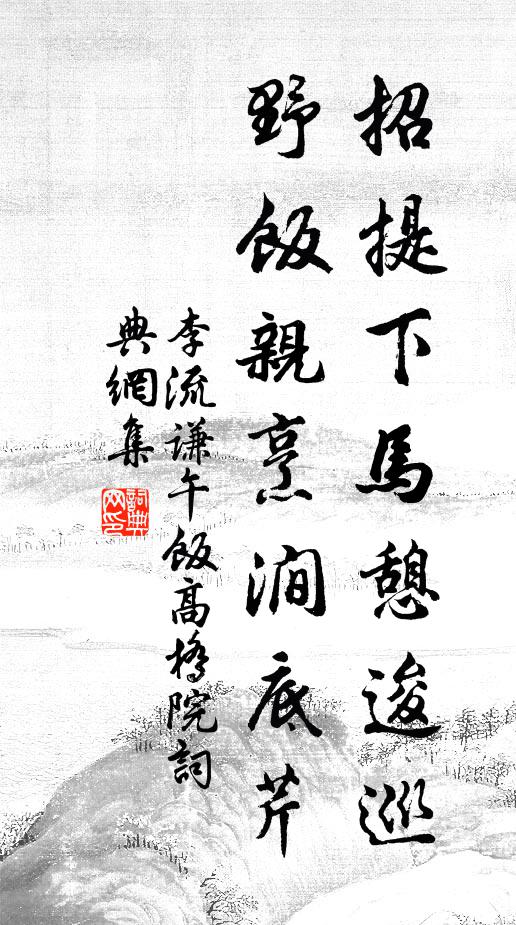 招提下馬憩逡巡
野飯親烹澗底芹
李流謙午飯高橋院詞
典網集
詞典網印